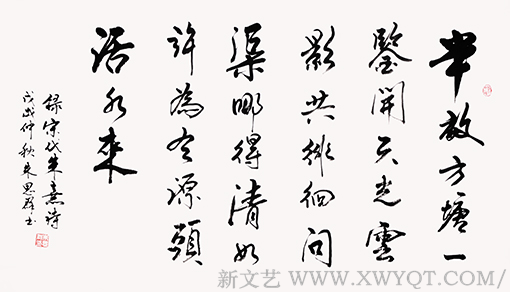 半畝方塘一
鑒開天光雲
影共徘徊問
渠哪得清如
許為有源頭
活水來
録宋代朱熹詩
戊戌仲秋朱思书
新文艺 WWW.XWYQT.COM/